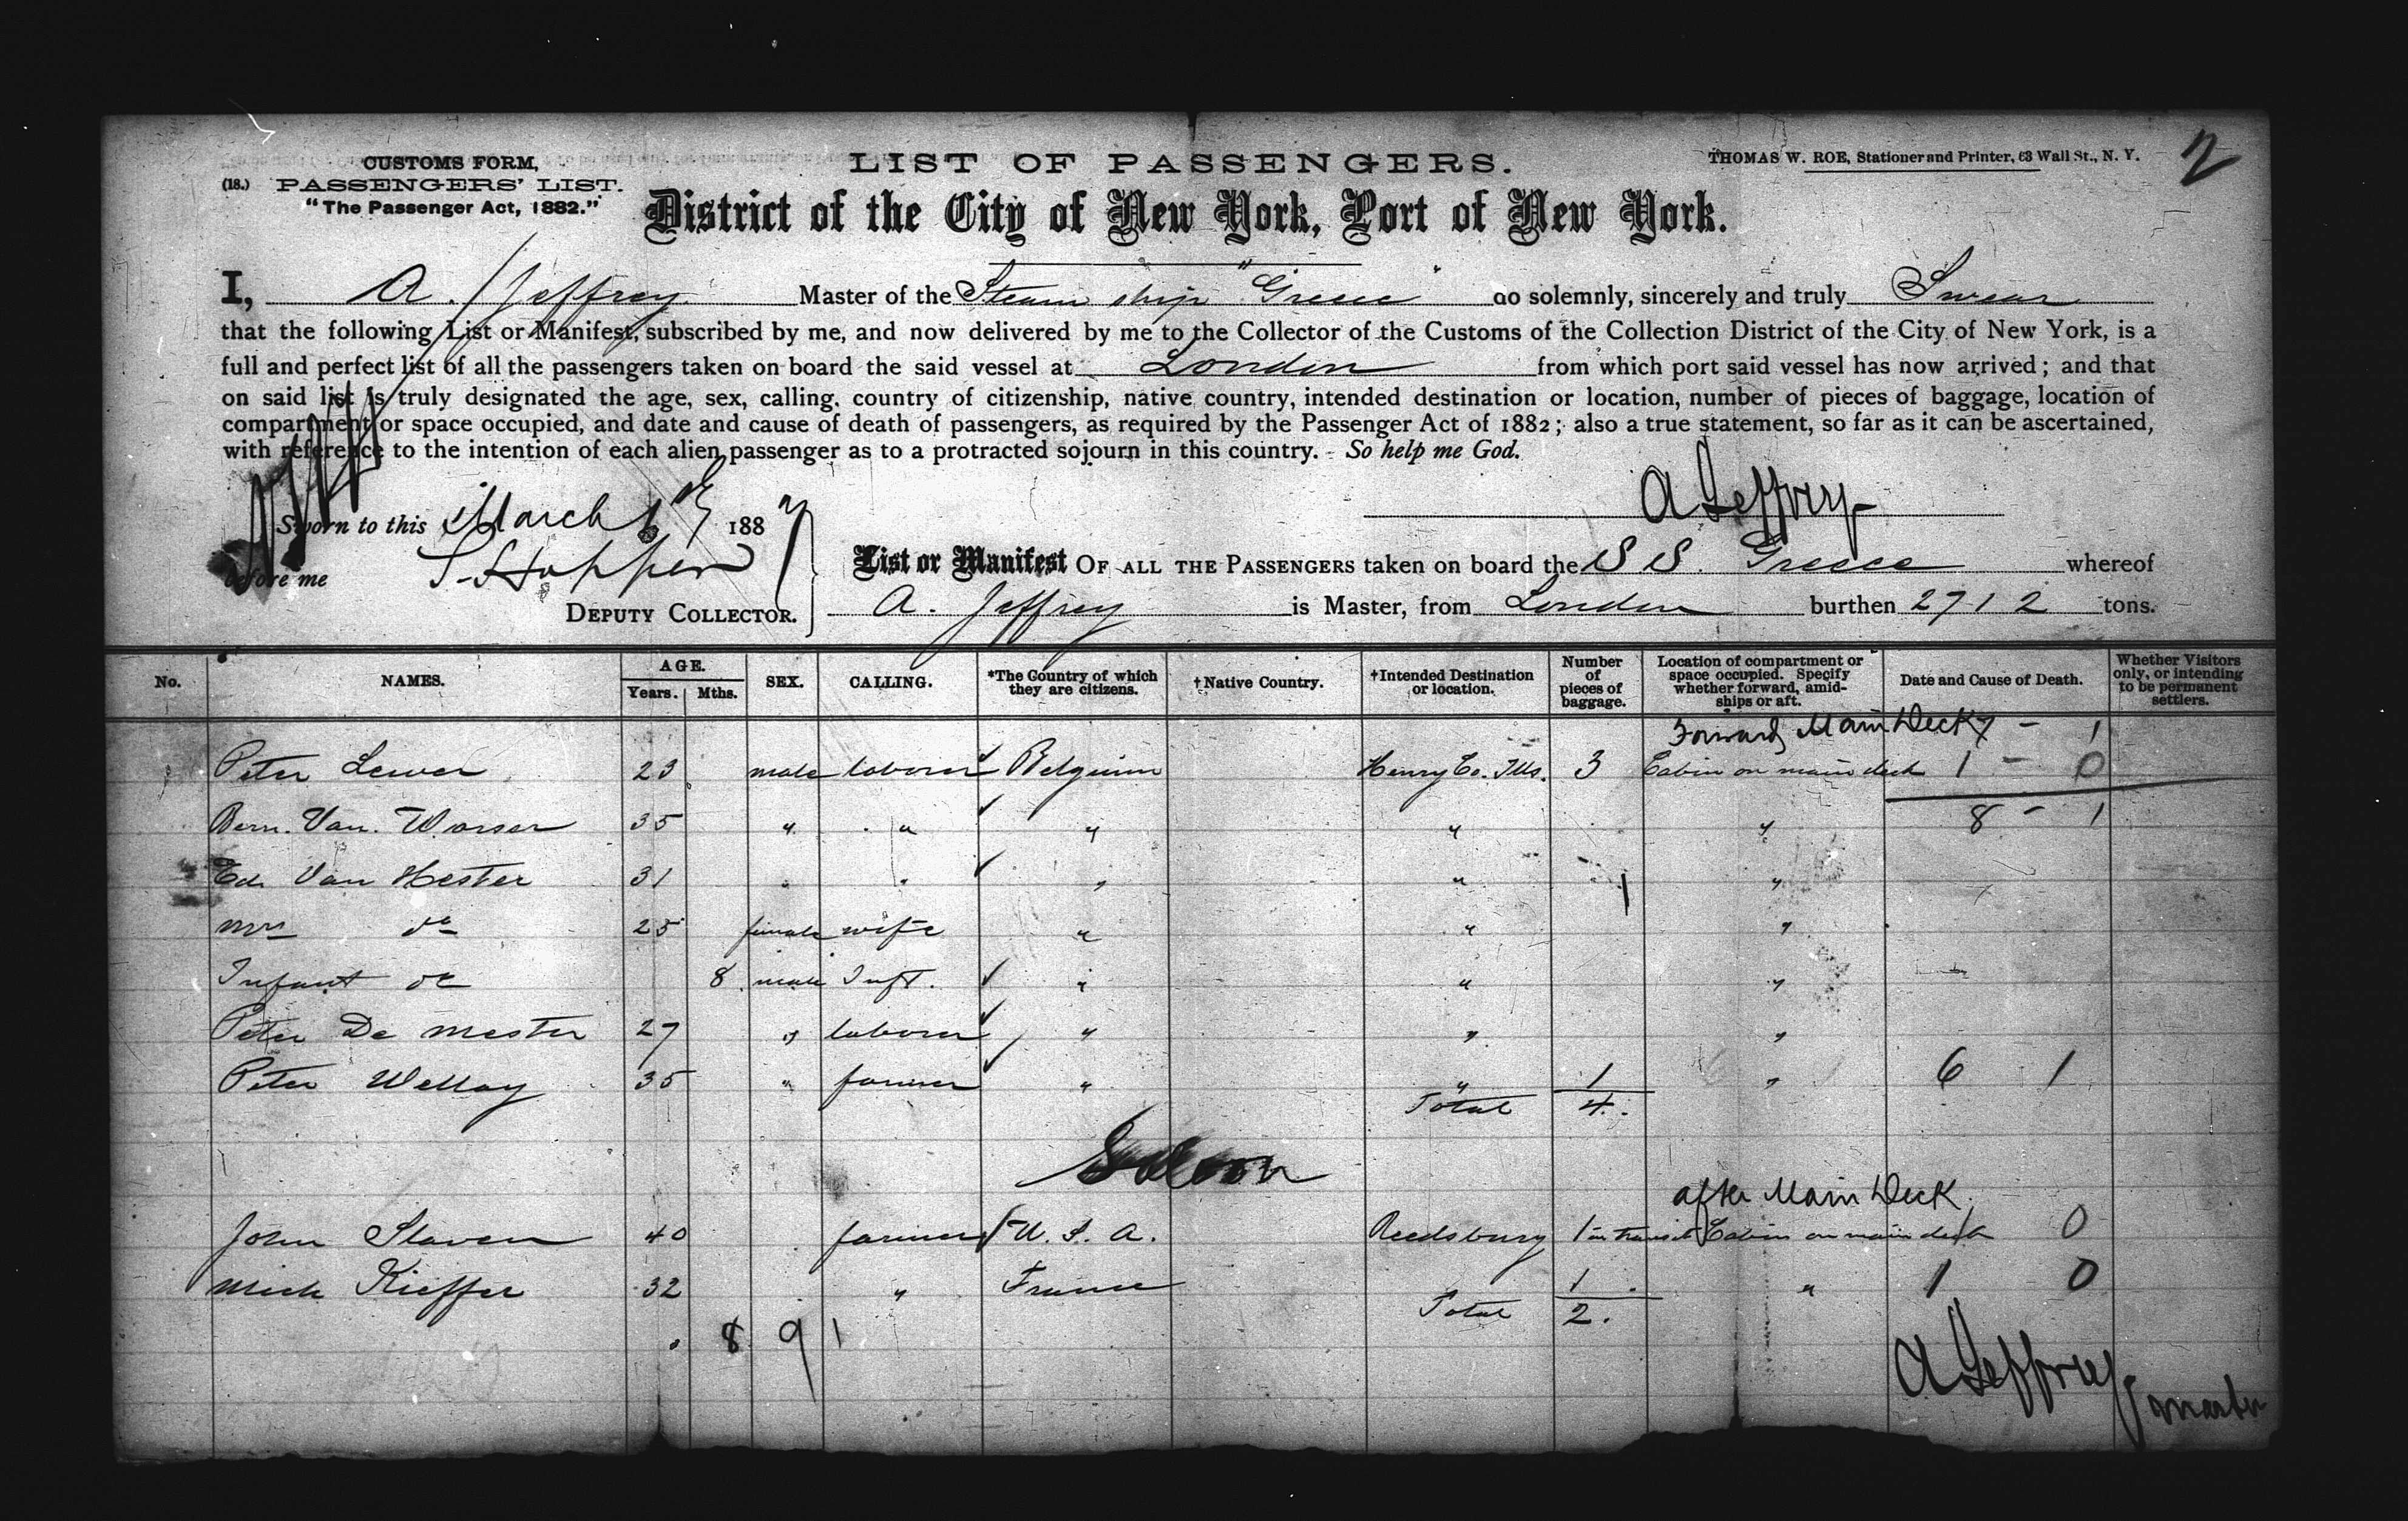 2
CUSTOMS FORM,
(18.) PASSENGERS' LIST.
"The Passenger Act, 1882."
LIST OF PASSENGERS.
THOMAS W. ROE, Stationer and Printer, 63 Wall St., N. Y.
District of the City of New York, Port of New York.
I, A. Jeffrey Master of the Steam ship "Greece" do solemnly, sincerely and truly Swear
that the following List or Manifest, subscribed by me, and now delivered by me to the Collector of the Customs of the Collection District of the City of New York, is a
full and perfect list of all the passengers taken on board the said vessel at London from which port said vessel has now arrived; and that
on said list is truly designated the age, sex, calling, country of citizenship, native country, intended destination or location, number of pieces of baggage, location of
compartment or space occupied, and date and cause of death of passengers, as required by the Passenger Act of 1882; also a true statement, so far as it can be ascertained,
with reference to the intention of each alien passenger as to a protracted sojourn in this country. So help me God.
A Jeffrey
Sworn to this March 1887
before me
DEPUTY COLLECTOR.
List or Manifest OF ALL THE PASSENGERS taken on board the S.S. Greece whereof
A. Jeffrey is Master, from London burthen 2712 tons.
No. NAMES. AGE. Years. Mths. SEX. CALLING. *The Country of which they are citizens. †Native Country. †Intended Destination or location. Number of pieces of baggage. Location of compartment or space occupied. Specify whether forward, amidships or aft. Date and Cause of Death. Whether Visitors only, or intending to be permanent settlers.
Forward Main Deck 7 - 1
Peter Lewer 23 male laborer Belgium Henry Co. Ills. 3 Cabin on main deck 1 - 0
Bern. Van. 35 " " " " " 8 - 1
Ed. Van Hester 31 " " " " 1 "
Mrs do 25 female wife " " "
Infant do 8 male Inft. " " "
Peter De Mester 27 " laborer " " "
Peter Wellay 35 " farmer " " 1 " 6 1
Total 4.
Saloon
after Main Deck
John Slaven 40 farmer U. S. A. Reedsburg 1 in transit Cabin on main deck 0
Mich Kieffer 32 " France 1 " 1 0
Total 2.
8 9 1
A Jeffrey
master